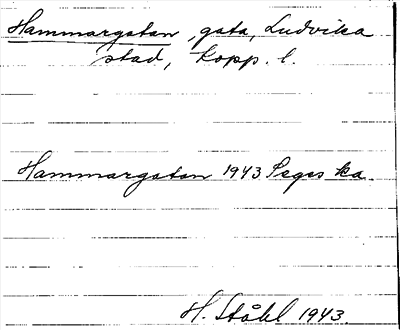 Hammargatan, gata, Ludvika
stad, Kopp. l.
Hammargatan 1943 Seges ka.
H. Ståhl 1943